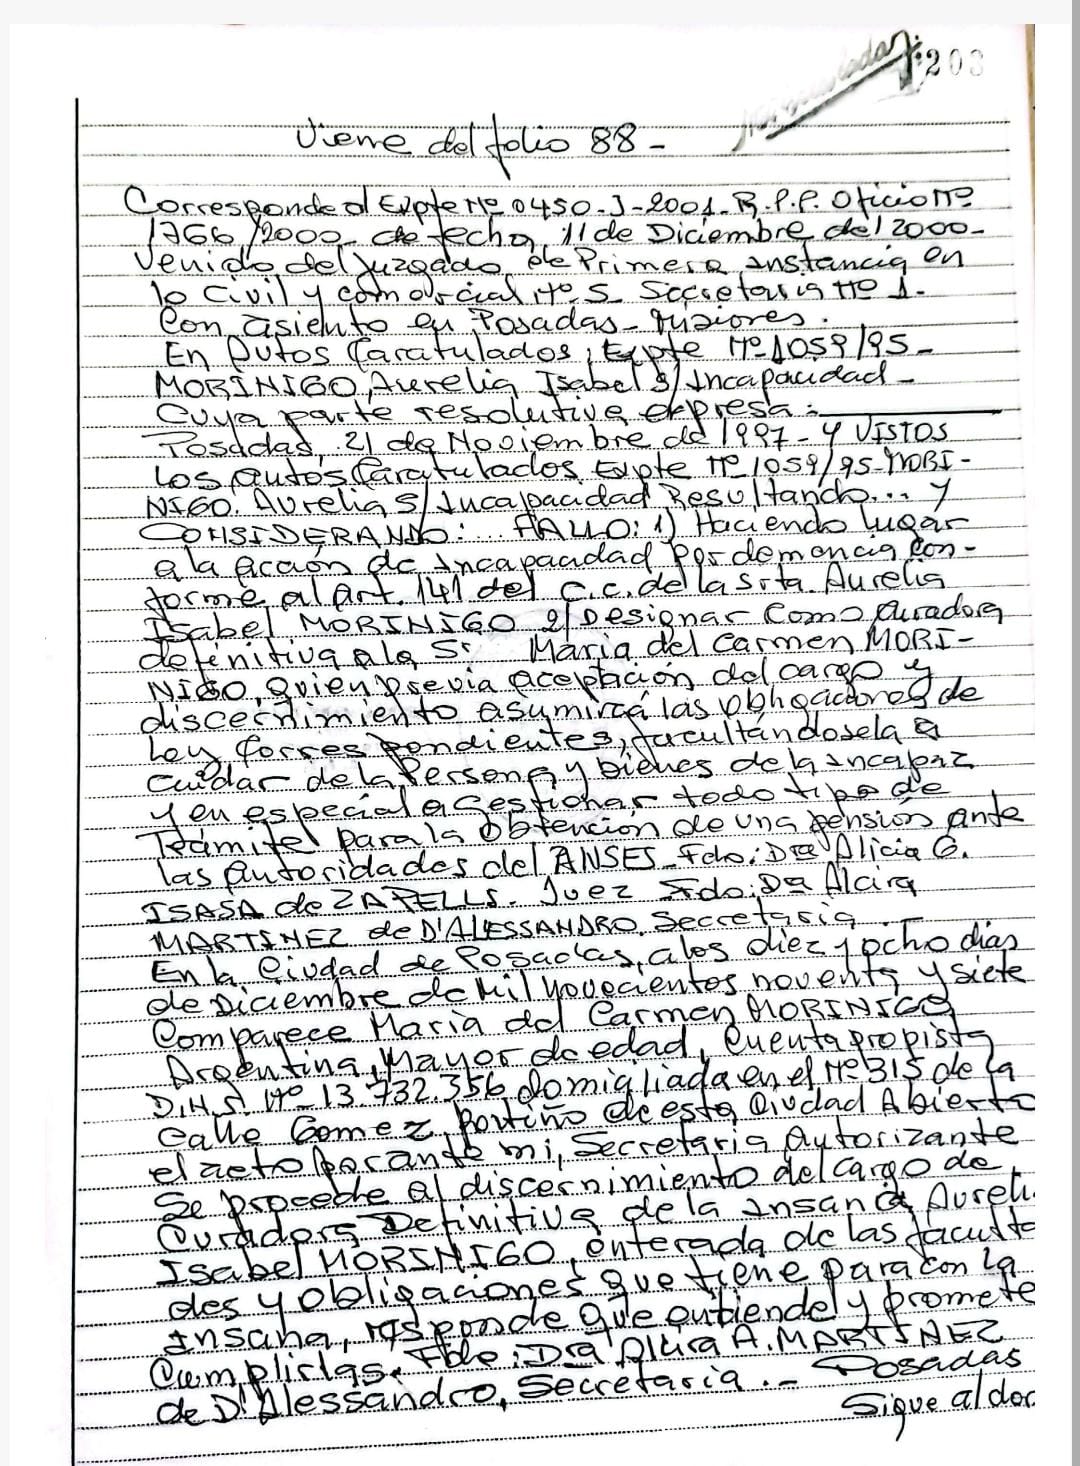 203
Viene del folio 88-
Corresponde al Expte Nº 0450-J-2001-R.P.P. Oficio Nº
1766/2000- de fecha, 11 de Diciembre del 2000-
Venido del Juzgado de Primera instancia en
lo Civil y comercial Nº 5 Secretaria Nº 1.
Con asiento en Posadas- Misiones.
En Autos Caratulados, Expte Nº 1059/95-
MORINIGO, Aurelia Isabel S/ Incapacidad-
Cuya parte resolutiva expresa:
Posadas, 21 de Noviembre de 1997- Y VISTOS
Los autos Caratulados Expte Nº 1059/95-MORI-
NIGO. Aurelia S/ Incapacidad Resultando... Y
CONSIDERANDO:... FALLO: 1) Haciendo lugar
a la acción de Incapacidad por demencia con-
forme al art. 141 del C.C. de la Srta. Aurelia
Isabel MORINIGO 2/ Designar Como Curadora
definitiva a la Sr Maria del Carmen MORI-
NIGO, quien previa aceptación del cargo y
discernimiento asumirá las obligaciones de
Ley Correspondientes, facultándosela a
cuidar de la Persona y bienes de la incapaz
y en especial a Gestionar todo tipo de
Trámite para la Obtención de una pensión ante
las autoridades del ANSES- Fdo: Dra Alicia G.
ISASA de ZAPELLS. Juez Fdo: Da Alcira
MARTINEZ de D'ALESSANDRO. Secretaria
En la Ciudad de Posadas, a los diez y ocho dias
de Diciembre de Mil Novecientos noventa y siete
Comparece Maria del Carmen MORINIGO
Argentina, Mayor de edad, Cuenta propista
D.N.I. Nº 13.732.356 domiciliada en el Nº 315 de la
calle Gomez Portiño de esta Ciudad Abierto
el acto por ante mi, Secretaria Autorizante
Se procede al discernimiento del cargo de
Curadora Definitiva de la insana Aureli.
Isabel MORINIGO, enterada de las faculta
des y obligaciones que tiene para con la
Insana, responde que entiende y promete
Cumplirlas. Fdo: Dra Alcira A. MARTINEZ
de D'Alessandro, Secretaria.- Posadas
Sigue al dor.